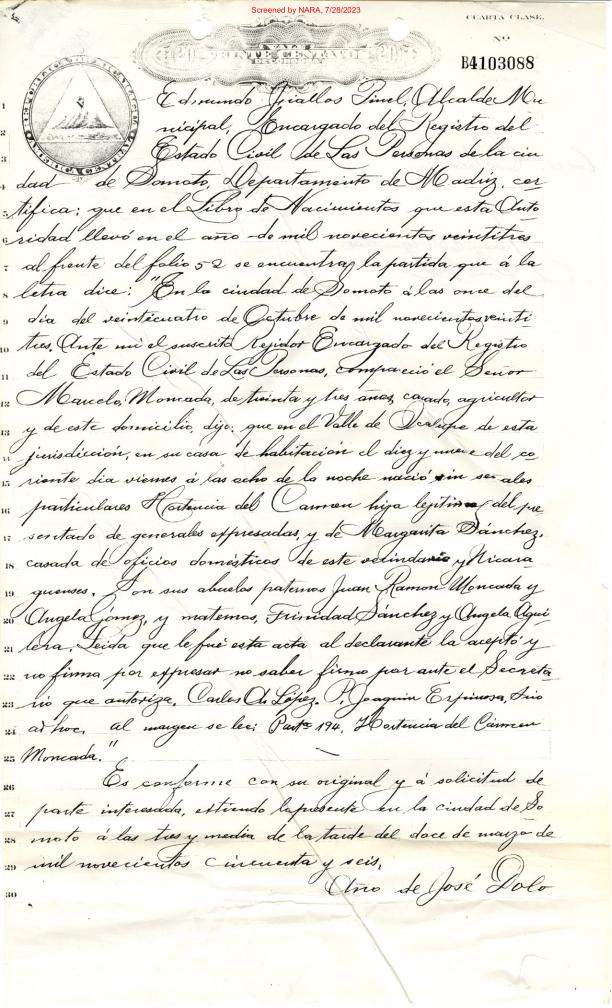 Screened by NARA, 7/28/2023
CUARTA CLASE.
Nº
B4103088
20 VEINTE CENTAVOS 20
DE CORDOBA
1 Edmundo Pinel, Alcalde Mu
2 nicipal, Encargado del Registro del
3 Estado Civil de Las Personas de la ciu
4 dad de Somoto, Departamento de Madriz, cer
5 tifica: que en el Libro de Nacimientos que esta Auto
6 ridad llevó en el año de mil novecientos veintitres
7 al frente del folio 52 se encuentra la partida que á la
8 letra dice: "En la ciudad de Somoto á las once del
9 día del veinticuatro de Octubre de mil novecientos veinti
10 tres. Ante mi el suscrito Rejidor Encargado del Registro
11 del Estado Civil de Las Personas, compareció el Señor
12 Marcelo Moncada, de treinta y tres años, casado, agricultor
13 y de este domicilio, dijo: que en el Valle de de esta
14 jurisdicción, en su casa de habitación el diez y nueve del co
15 riente dia viernes á las ocho de la noche nació sin señales
16 particulares Hortencia del Carmen hija legitima del pre
17 sentado de generales expresadas, y de Margarita Sánchez,
18 casada de oficios domésticos de este vecindario y Nicara
19 guenses. Son sus abuelos paternos Juan Ramon Moncada y
20 Angela Gómez, y maternos, Trinidad Sánchez y Angela Agui
21 lera. Leida que le fué esta acta al declarante la aceptó y
22 no firma por expresar no saber firmo por ante el Secreta
23 rio que autoriza. Carlos A. López. P. Joaquin Espinosa, Srio
24 ad hoc. al margen se lee: Parta 194. Hortencia del Cármen
25 Moncada."
26 Es conforme con su original y á solicitud de
27 parte interesada, extiendo la presente en la ciudad de So
28 moto á las tres y media de la tarde del doce de marzo de
29 mil novecientos cincuenta y seis.
30 Año de José Dolo